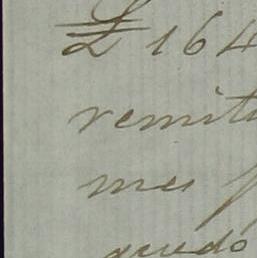 £ 164
remit
mes
quedo